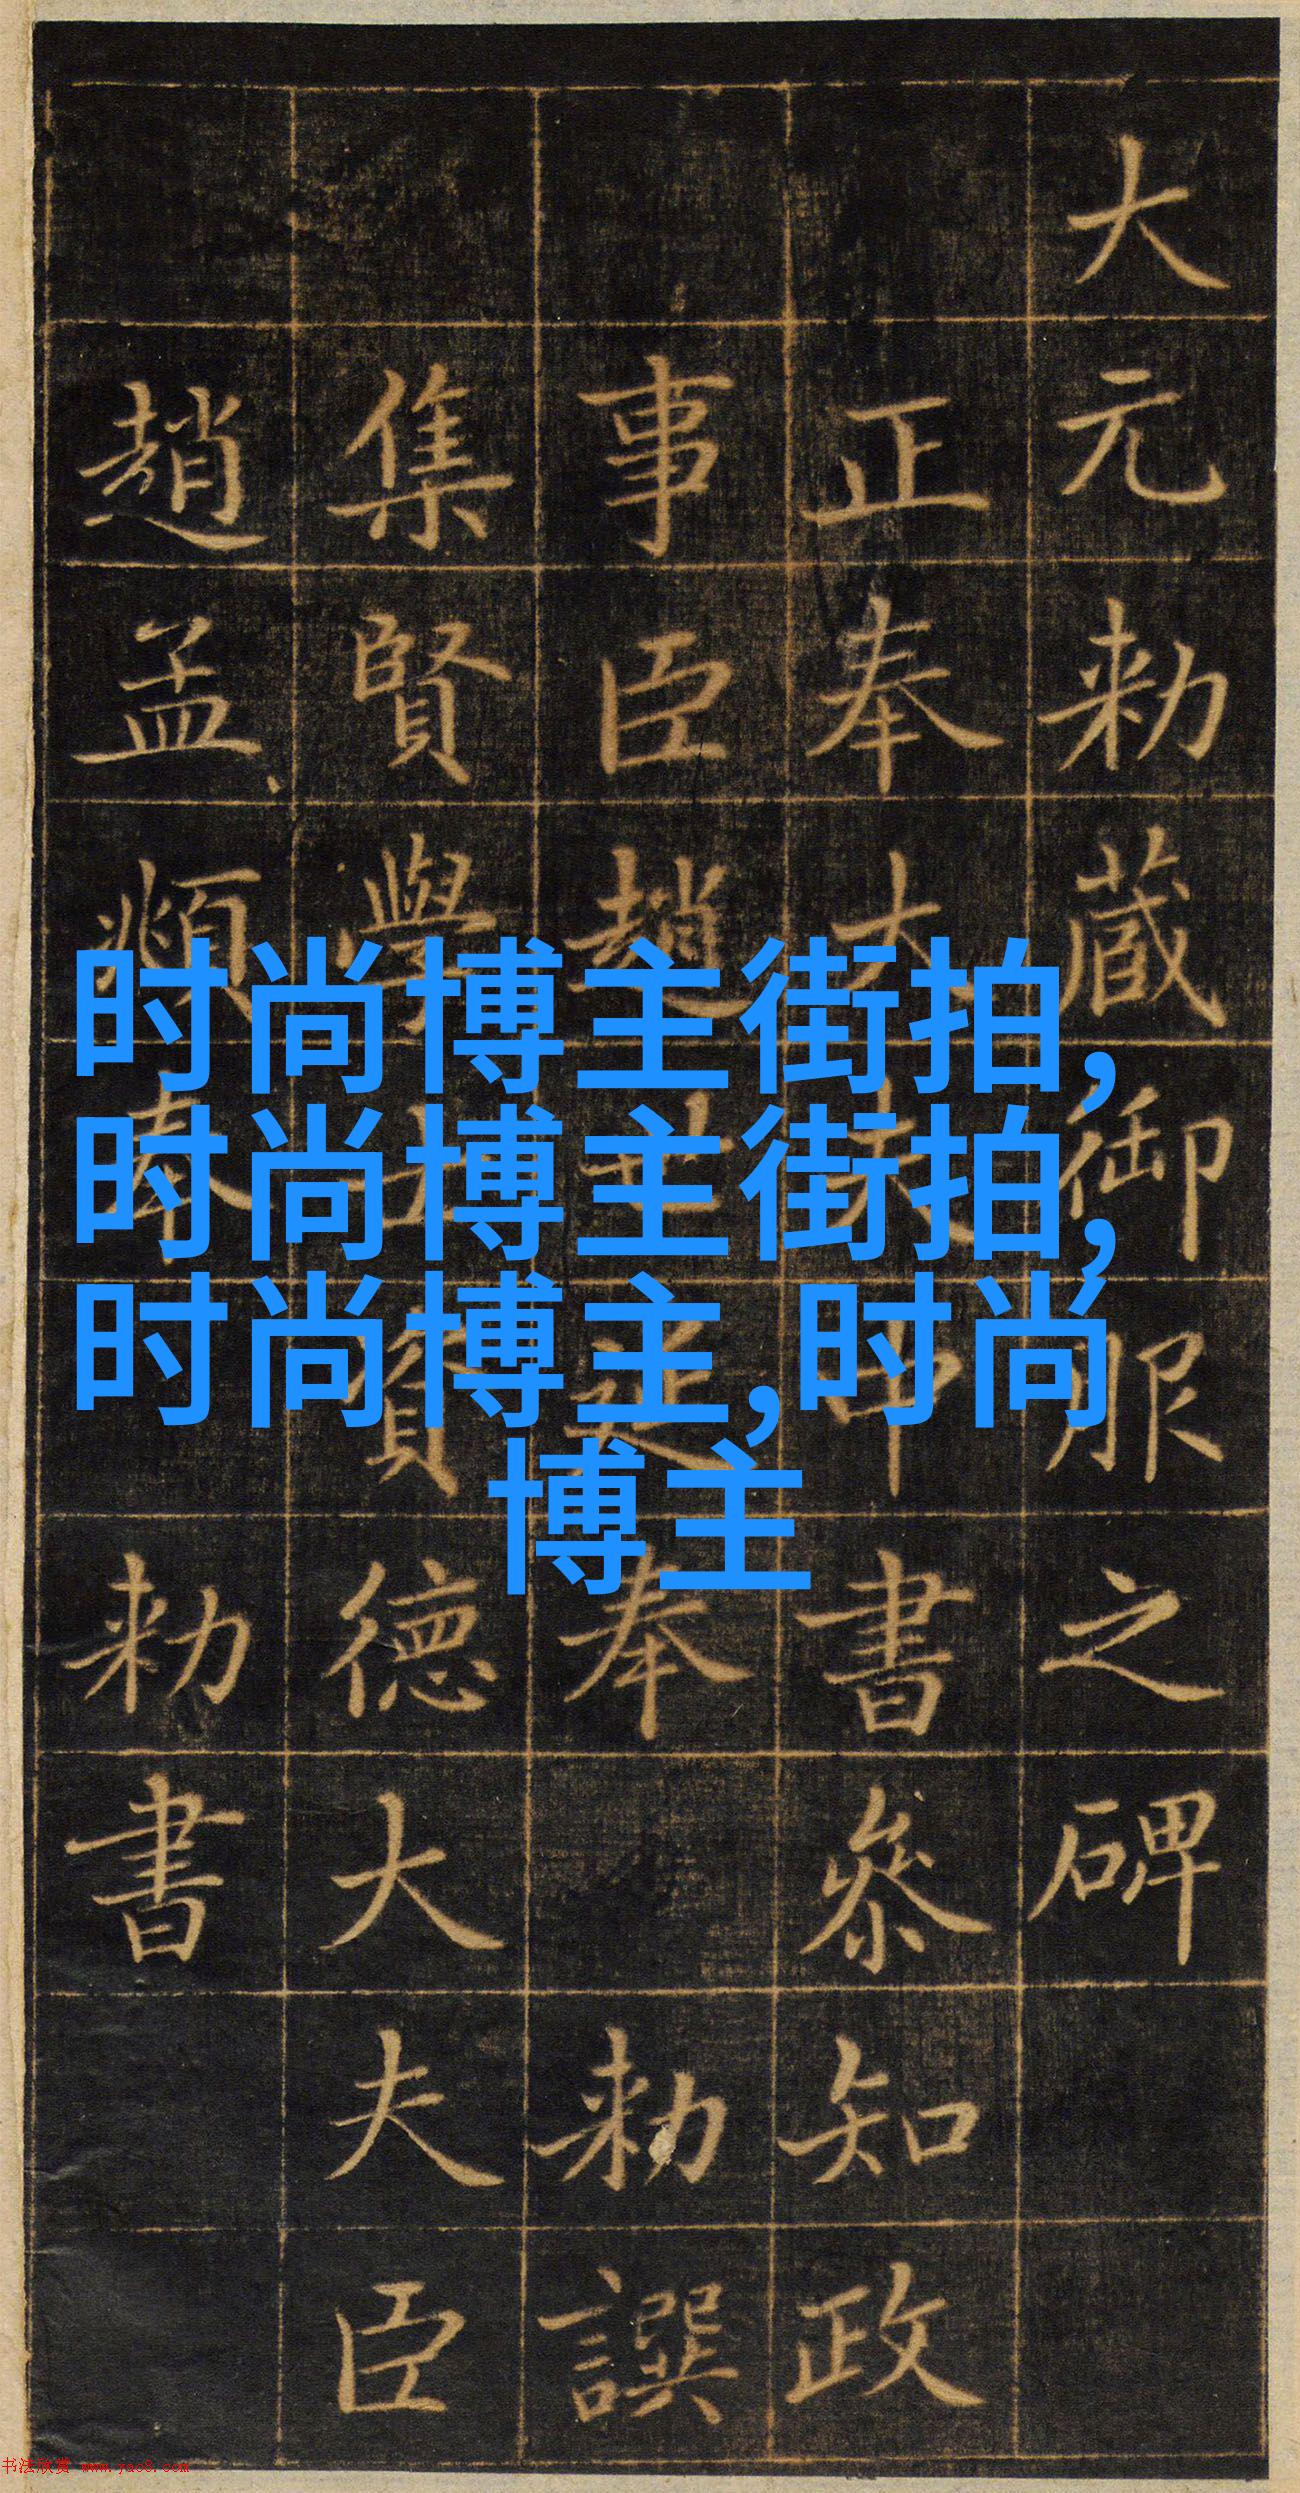 大元勅藏御服之碑
正奉大夫中書參知政
事臣趙世延奉 勅譔
集賢學士資德大夫臣
趙孟頫奉 勅書
时尚博主街拍,
时尚博主街拍,
时尚博主,时尚
博主
书法欣赏 www.yac8.com